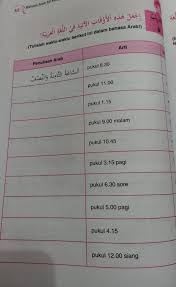 اِجْعَلْ هٰذِهِ الْأَوْقَاتَ الْآتِيَةَ فِي اللُّغَةِ الْعَرَبِيَّةِ!
(Tulislah waktu-waktu berikut ini dalam bahasa Arab!)
Penulisan Arab Arti
السَّاعَةُ الثَّامِنَةُ وَالنِّصْفُ pukul 8.30
pukul 11.00
pukul 1.15
pukul 9.00 malam
pukul 10.45
pukul 3.15 pagi
pukul 6.30 sore
pukul 5.00 pagi
pukul 4.15
pukul 12.00 siang